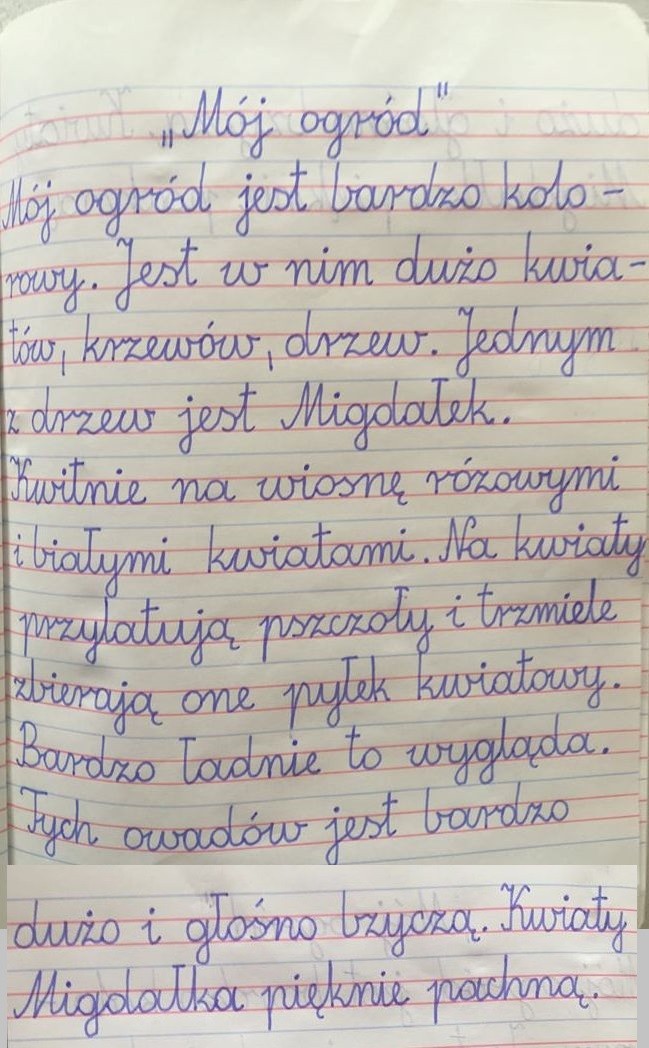 „Mój ogród"
Mój ogród jest bardzo kolo-
rowy. Jest w nim dużo kwia-
tów, krzewów, drzew. Jednym
z drzew jest Migdałek.
Kwitnie na wiosnę rózowymi
i białymi kwiatami. Na kwiaty
przylatują pszczoły i trzmiele
zbierają one pyłek kwiatowy.
Bardzo ładnie to wygląda.
Tych owadów jest bardzo
dużo i głośno bzyczą. Kwiaty
Migdałka pięknie pachną.